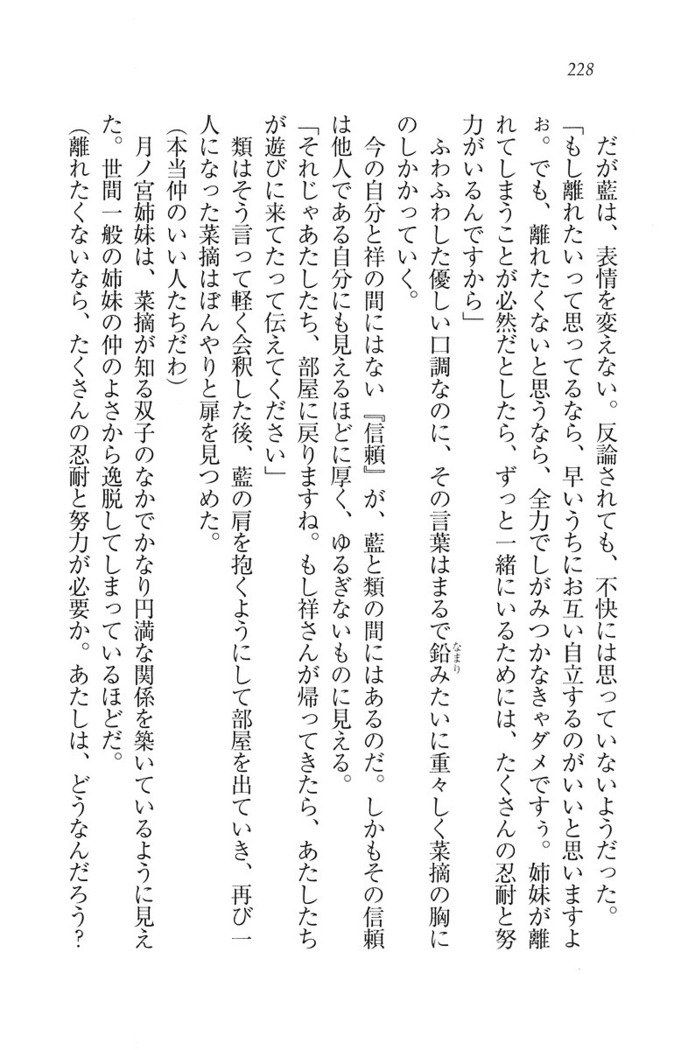 228
だが藍は、表情を変えない。反論されても、不快には思っていないようだった。
「もし離れたいって思ってるなら、早いうちにお互い自立するのがいいと思いますよ
ぉ。でも、離れたくないと思うなら、全力でしがみつかなきゃダメですぅ。姉妹が離
れてしまうことが必然だとしたら、ずっと一緒にいるためには、たくさんの忍耐と努
力がいるんですから」
ふわふわした優しい口調なのに、その言葉はまるで鉛みたいに重々しく菜摘の胸に
なまり
のしかかっていく。
今の自分と祥の間にはない『信頼』が、藍と類の間にはあるのだ。しかもその信頼
は他人である自分にも見えるほどに厚く、ゆるぎないものに見える。
「それじゃあたしたち、部屋に戻りますね。もし祥さんが帰ってきたら、あたしたち
が遊びに来てたって伝えてください」
類はそう言って軽く会釈した後、藍の肩を抱くようにして部屋を出ていき、再び一
人になった菜摘はぼんやりと扉を見つめた。
(本当仲のいい人たちだわ)
月ノ宮姉妹は、菜摘が知る双子のなかでかなり円満な関係を築いているように見え
た。世間一般の姉妹の仲のよさから逸脱してしまっているほどだ。
(離れたくないなら、たくさんの忍耐と努力が必要か。あたしは、どうなんだろう?